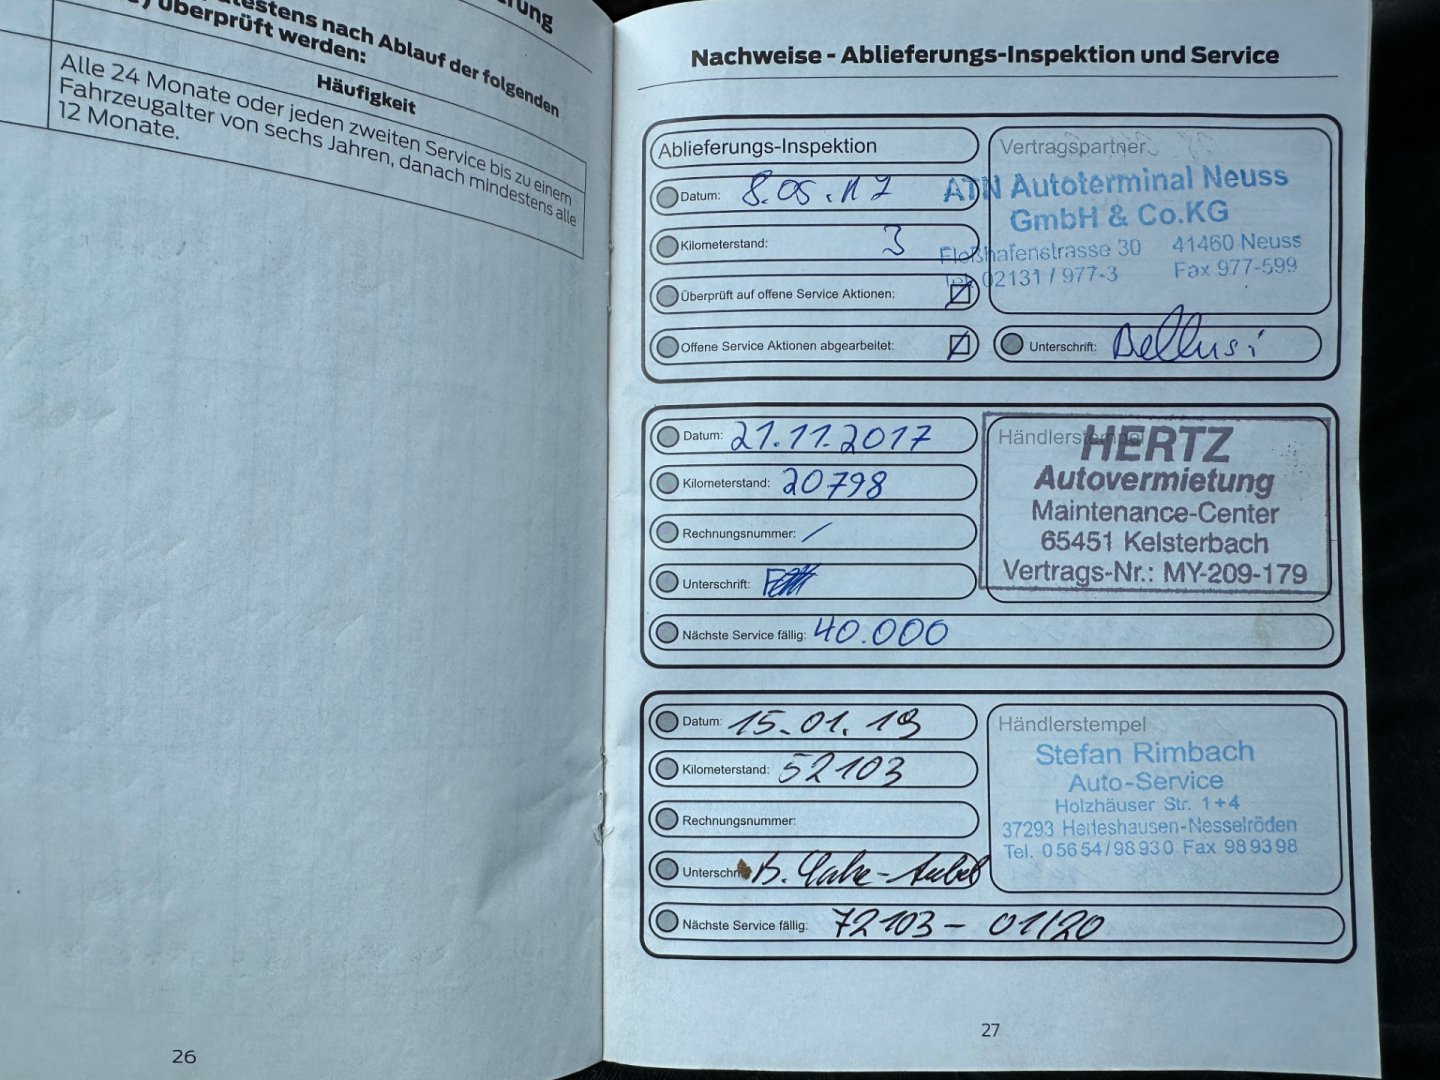 überprüft werden:
nach Ablauf der folgenden
Häufigkeit
Alle 24 Monate oder jeden zweiten Service bis zu einem
Fahrzeugalter von sechs Jahren, danach mindestens alle
12 Monate.
26
Nachweise - Ablieferungs-Inspektion und Service
Ablieferungs-Inspektion
Datum: 8.05.17
Kilometerstand: 3
Überprüft auf offene Service Aktionen:
Offene Service Aktionen abgearbeitet:
Vertragspartner
ATN Autoterminal Neuss
GmbH & Co.KG
Floßhafenstrasse 30 41460 Neuss
Tel. 02131 / 977-3 Fax 977-599
Unterschrift: Bellusi
Datum: 21.11.2017
Kilometerstand: 20798
Rechnungsnummer: /
Unterschrift:
Nächste Service fällig: 40.000
Händlerstempel
HERTZ
Autovermietung
Maintenance-Center
65451 Kelsterbach
Vertrags-Nr.: MY-209-179
Datum: 15.01.19
Kilometerstand: 52103
Rechnungsnummer:
Unterschrift: B.
Nächste Service fällig: 72103 - 01/20
Händlerstempel
Stefan Rimbach
Auto-Service
Holzhäuser Str. 1+4
37293 Herleshausen-Nesselröden
Tel. 05654/98930 Fax 989398
27